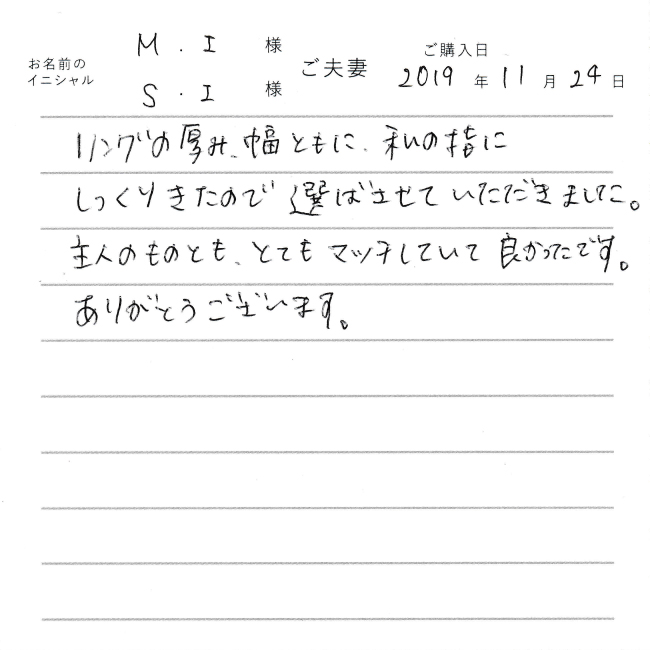 お名前の
イニシャル
M . I 様
S . I 様
ご夫妻
ご購入日
2019 年 11 月 24 日
リングの厚み、幅ともに、私の指に
しっくりきたので 選ばさせて いただきました。
主人のものとも、とても マッチしていて 良かったです。
ありがとうございます。